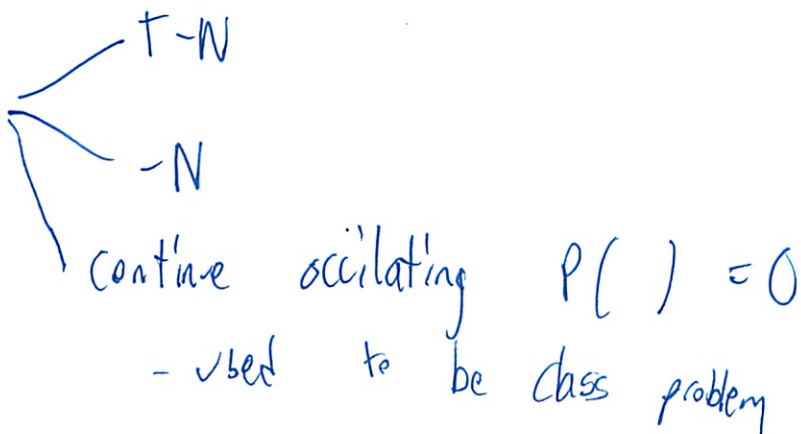 T-N
-N
continue occilating P( ) = 0
- used to be class problem